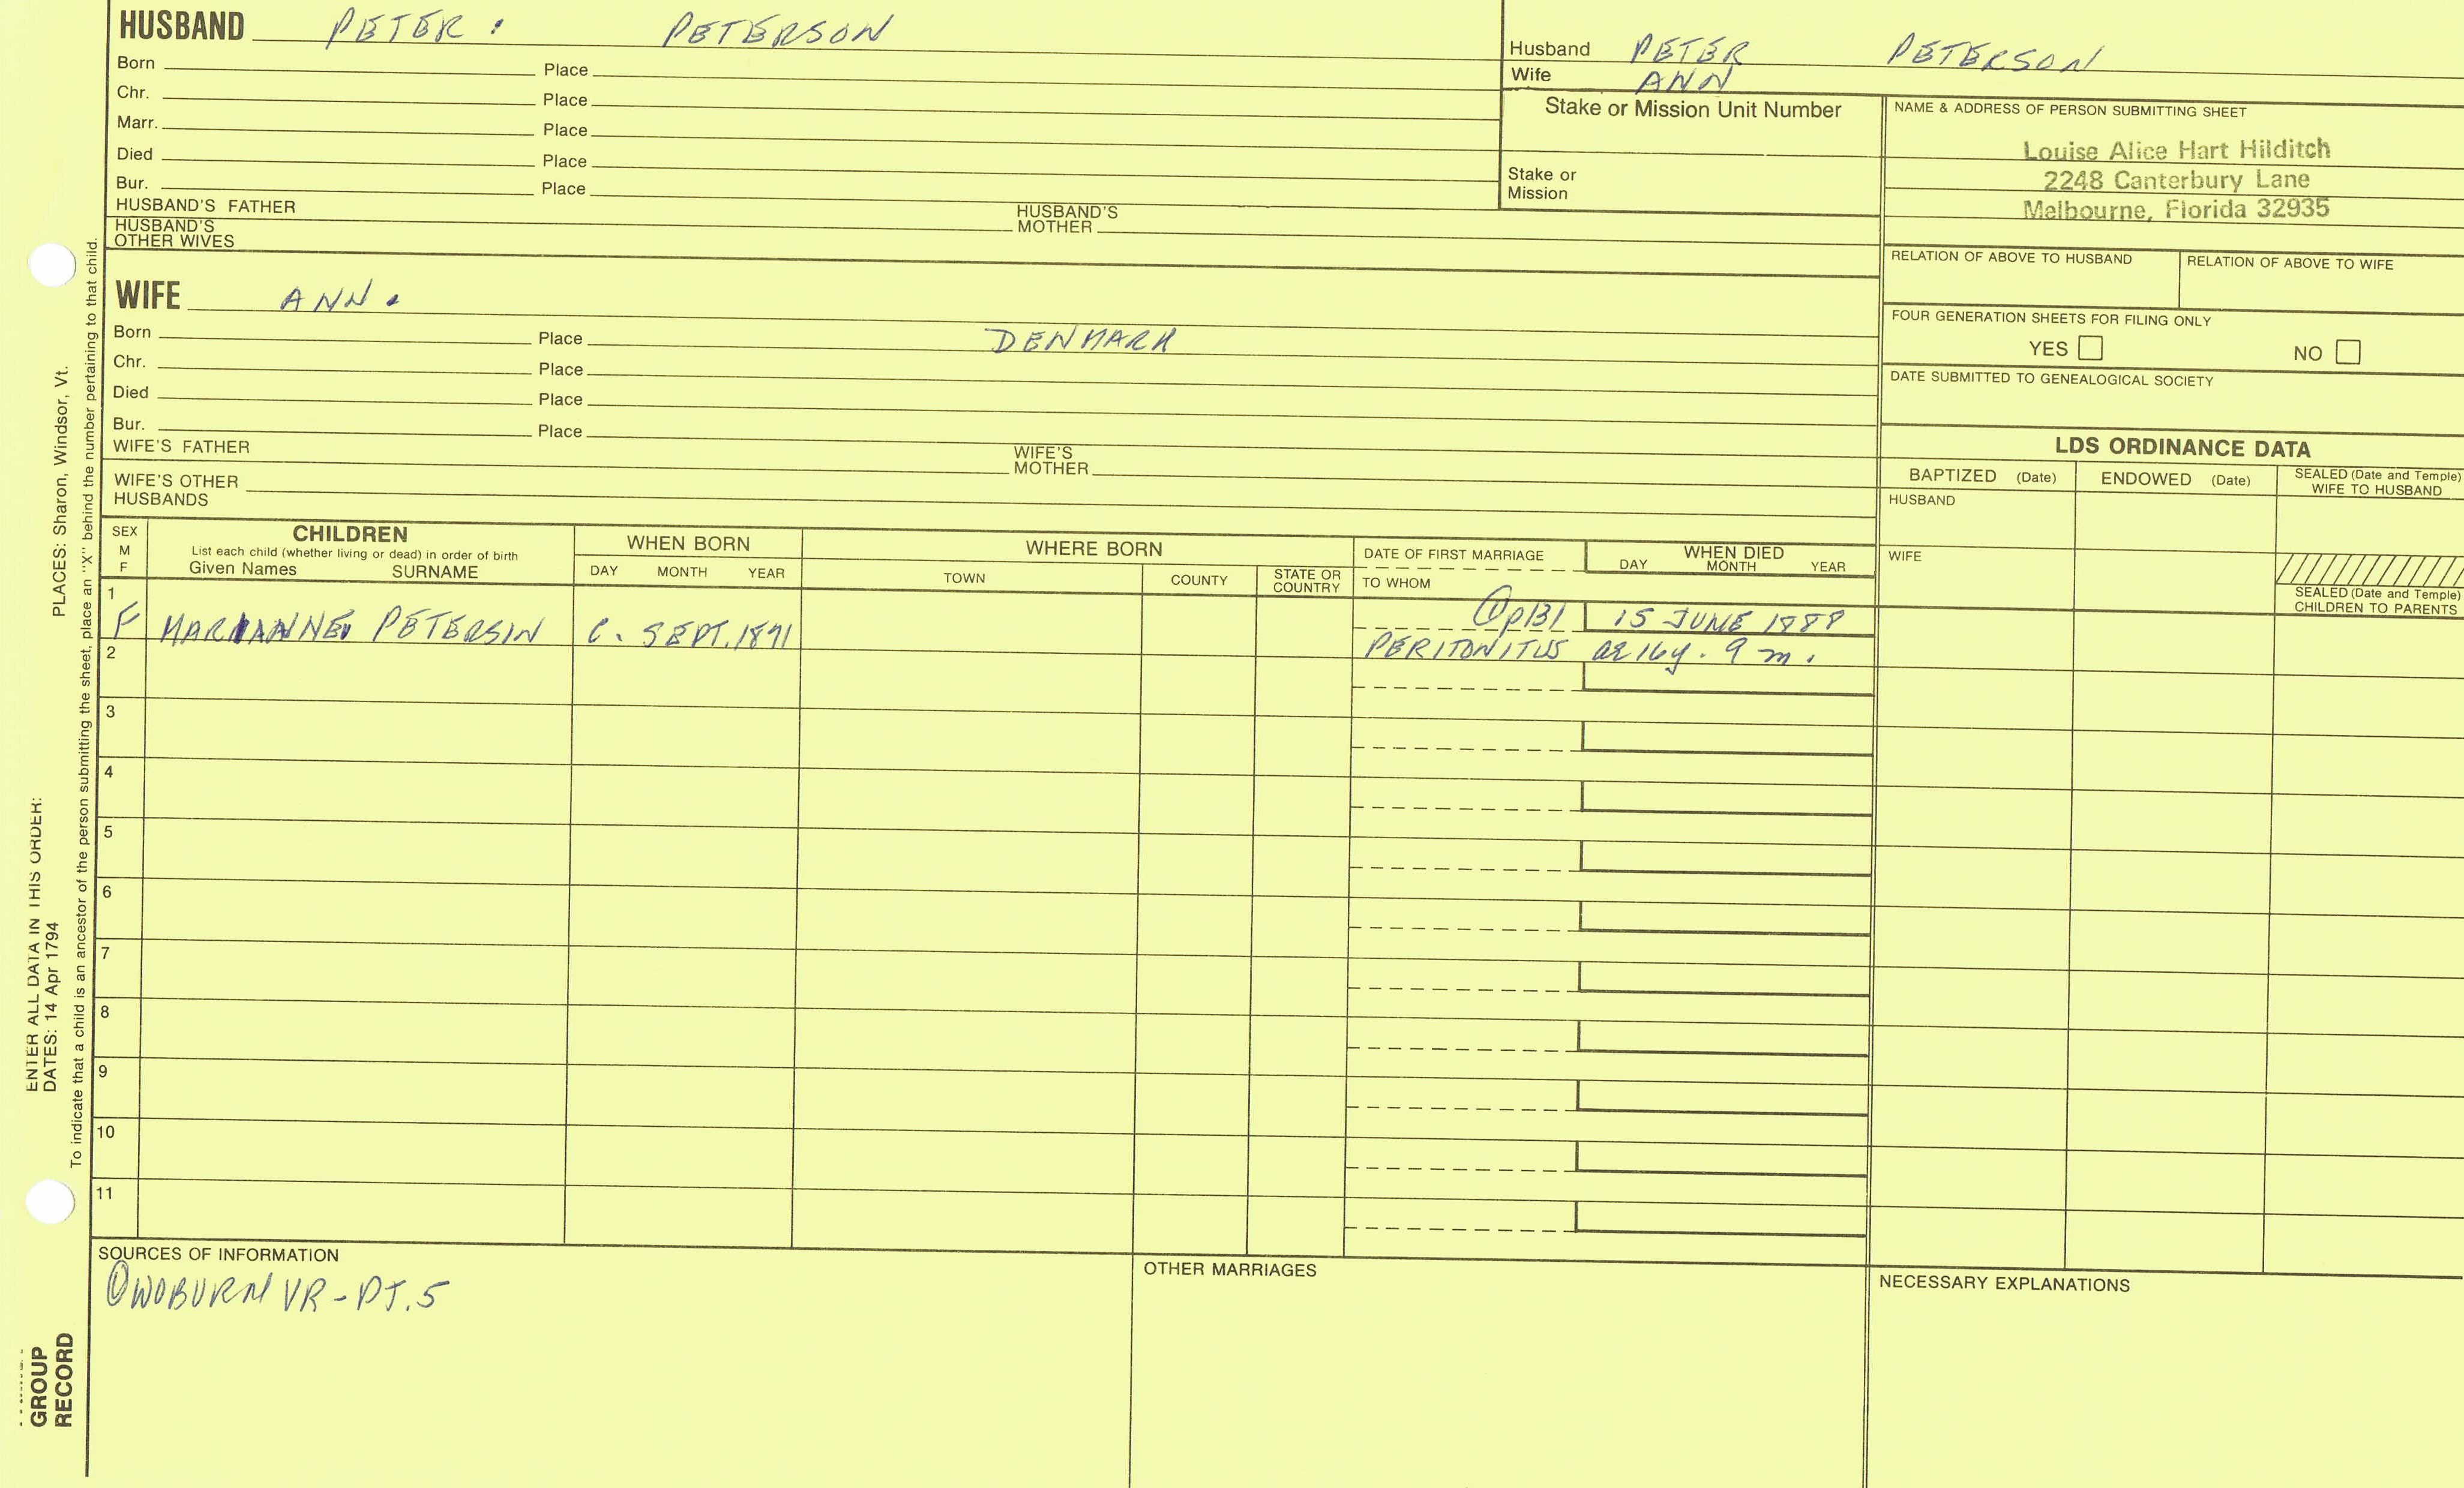 HUSBAND PETER : PETERSON
Born Place
Chr. Place
Marr. Place
Died Place
Bur. Place
HUSBAND'S FATHER HUSBAND'S MOTHER
HUSBAND'S OTHER WIVES
Husband PETER PETERSON
Wife ANN
Stake or Mission Unit Number
Stake or Mission
NAME & ADDRESS OF PERSON SUBMITTING SHEET
Louise Alice Hart Hilditch
2248 Canterbury Lane
Melbourne, Florida 32935
RELATION OF ABOVE TO HUSBAND RELATION OF ABOVE TO WIFE
FOUR GENERATION SHEETS FOR FILING ONLY
YES NO
DATE SUBMITTED TO GENEALOGICAL SOCIETY
WIFE ANN .
Born Place DENMARK
Chr. Place
Died Place
Bur. Place
WIFE'S FATHER WIFE'S MOTHER
WIFE'S OTHER HUSBANDS
LDS ORDINANCE DATA
BAPTIZED (Date) ENDOWED (Date) SEALED (Date and Temple) WIFE TO HUSBAND
HUSBAND
WIFE
SEALED (Date and Temple) CHILDREN TO PARENTS
SEX M F
CHILDREN
List each child (whether living or dead) in order of birth
Given Names SURNAME
WHEN BORN
DAY MONTH YEAR
WHERE BORN
TOWN COUNTY STATE OR COUNTRY
DATE OF FIRST MARRIAGE
TO WHOM
WHEN DIED
DAY MONTH YEAR
1
F MARIANNE PETERSIN C. SEPT. 1871 p131 15 JUNE 1888
2 PERITONITUS ae 16y. 9 m.
3
4
5
6
7
8
9
10
11
SOURCES OF INFORMATION
① WOBURN VR - PT. 5
OTHER MARRIAGES
NECESSARY EXPLANATIONS
ENTER ALL DATA IN THIS ORDER:
DATES: 14 Apr 1794 PLACES: Sharon, Windsor, Vt.
To indicate that a child is an ancestor of the person submitting the sheet, place an "X" behind the number pertaining to that child.
GROUP
RECORD